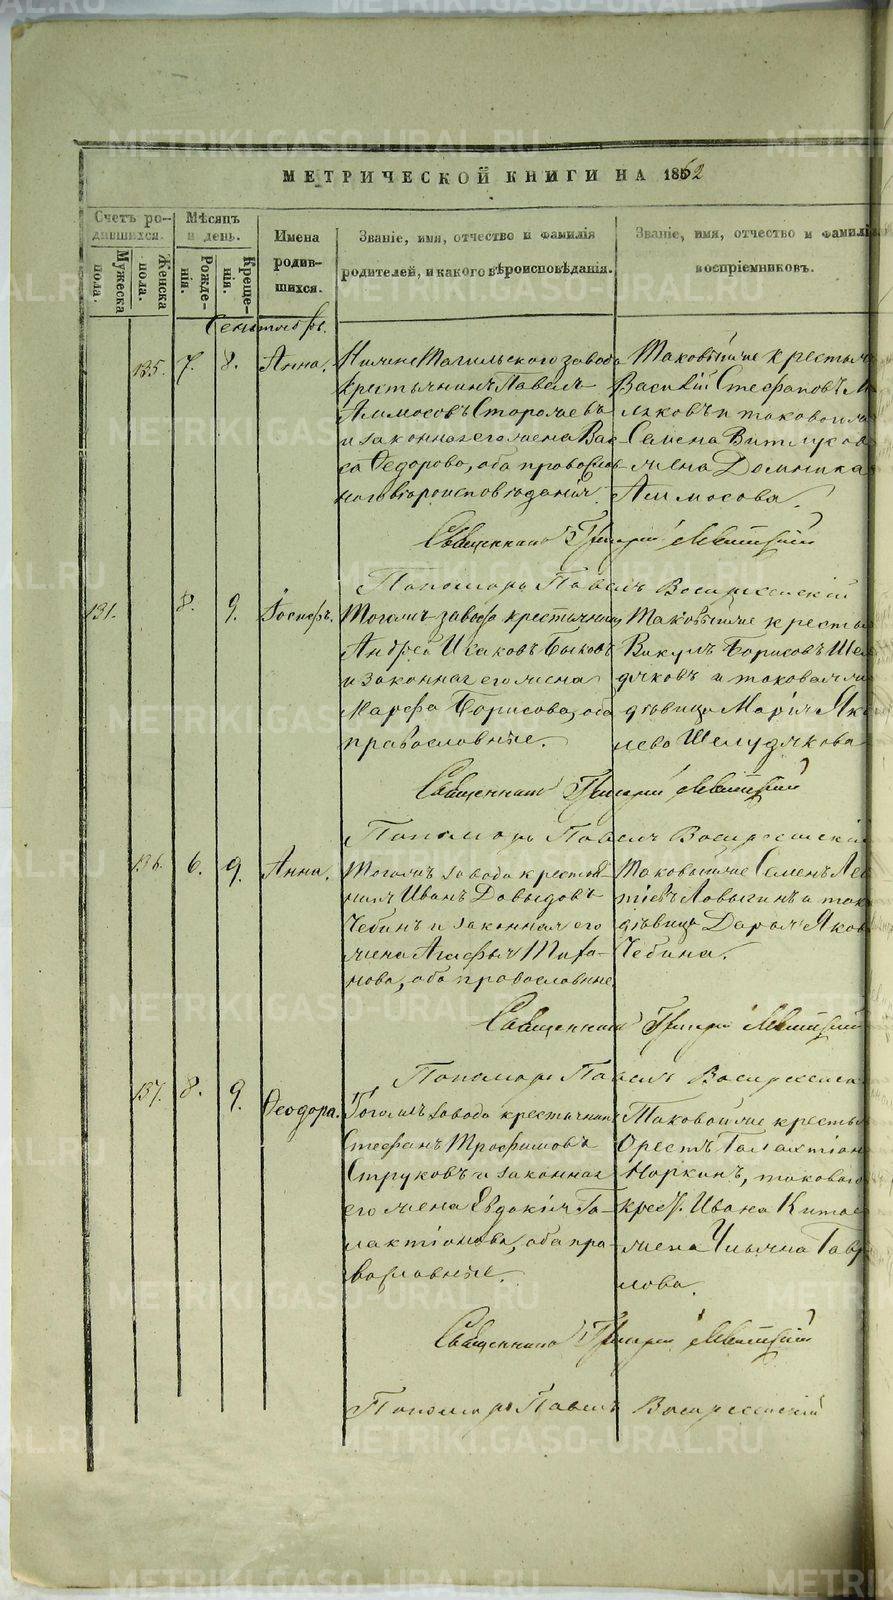 МЕТРИЧЕСКОЙ КНИГИ НА 1862
Счетъ ро-
дившихся.
Мужеска
пола.
Женска
пола.
Мѣсяцъ
и день.
Рожде-
нія.
Креще-
нія.
Имена
родив-
шихся.
Званіе, имя, отчество и фамилія
родителей, и какого вѣроисповѣданія.
Званіе, имя, отчество и фамилі
воспріемниковъ.
Сентябрь.
135. 7. 8. Анна.
Нижне Тагильскаго завода
крестьянинъ Павелъ
Аммосовъ
и законная его жена Вас-
са Федорова, оба православ-
наго вѣроисповѣданія.
Таковыйже крестьян
Василій Стефановъ
и таковаго
Семена жена Домника
Аммосова.
Священникъ Григорій Левитскій
Пономарь Павелъ Воскресенскій
131. 8. 9. Іосифъ.
Тогожъ завода крестьянинъ
Андрей Исаковъ Быковъ
и законная его жена
Марфа Борисова, оба
православные.
Таковыйже крестья
Викулъ Борисовъ Шел
дяковъ и таковаяже
дѣвица Марія Як
лева Шелудякова
Священникъ Григорій Левитскій
Пономарь Павелъ Воскресенскій
136. 6. 9. Анна.
Тогожъ завода крестья-
нинъ Иванъ Давыдовъ
Чебинъ и законная его
жена Агафья Тиха-
нова, оба православные.
Таковыйже Семенъ Ле
тіевъ Ловыгинъ и так
дѣвица Дарья Яков
Чебина.
Священникъ Григорій Левитскій
Пономарь Павелъ Воскресенск
137. 8. 9. Феодора.
Тогожъ завода крестьянинъ
Стефанъ Трофимовъ
Струковъ и законная
его жена Евдокія Га-
лактіонова, оба пра-
вославные.
Таковойже крестья
Орестъ Галактіон
Норкинъ, таковаго
крест. Ивана Китае
жена Ульяна Гавр
лова.
Священникъ Григорій Левитскій
Пономарь Павелъ Воскресенскій
METRIKI.GASO-URAL.RU